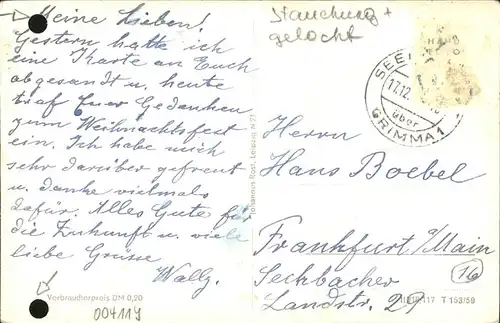 Meine Lieben!
Gestern hatte ich
eine Karte an Euch
abgesandt u. heute
traf Euer Gedenken
zum Weihnachtsfest
ein. Ich habe mich
sehr darüber gefreut
u. danke vielmals
dafür. Alles Gute für
die Zukunft u. viele
liebe Grüsse
Wally.
Verbraucherpreis DM 0,20
004114
Leipzig N 21
Stauchung +
gelocht
SEEL
17.12.
über
GRIMMA 1
Herrn
Hans Boebel
Frankfurt/Main
16
Seckbacher
Landstr. 29
117 T 153/59